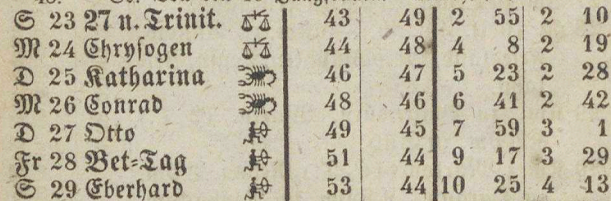 S 23 27 n. Trinit. ♎ 43 49 2 55 2 10
M 24 Chryſogen ♎ 44 48 4 8 2 19
D 25 Katharina ♏ 46 47 5 23 2 28
M 26 Conrad ♏ 48 46 6 41 2 42
D 27 Otto ♐ 49 45 7 59 3 1
Fr 28 Bet-Tag ♐ 51 44 9 17 3 29
S 29 Eberhard ♐ 53 44 10 25 4 13